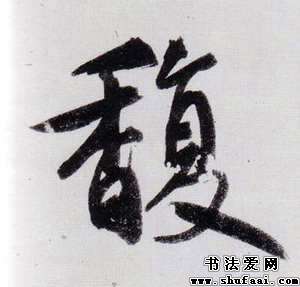 馥
书法爱网
www.shufaai.com